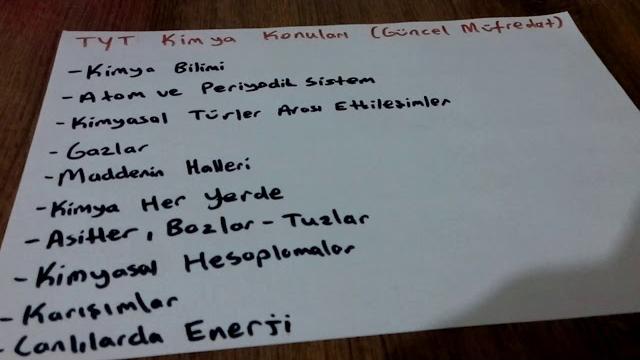 TYT Kimya Konuları (Güncel Müfredat)
- Kimya Bilimi
- Atom ve Periyodik Sistem
- Kimyasal Türler Arası Etkileşimler
- Gazlar
- Maddenin Halleri
- Kimya Her Yerde
- Asitler, Bazlar - Tuzlar
- Kimyasal Hesaplamalar
- Karışımlar
- Canlılarda Enerji